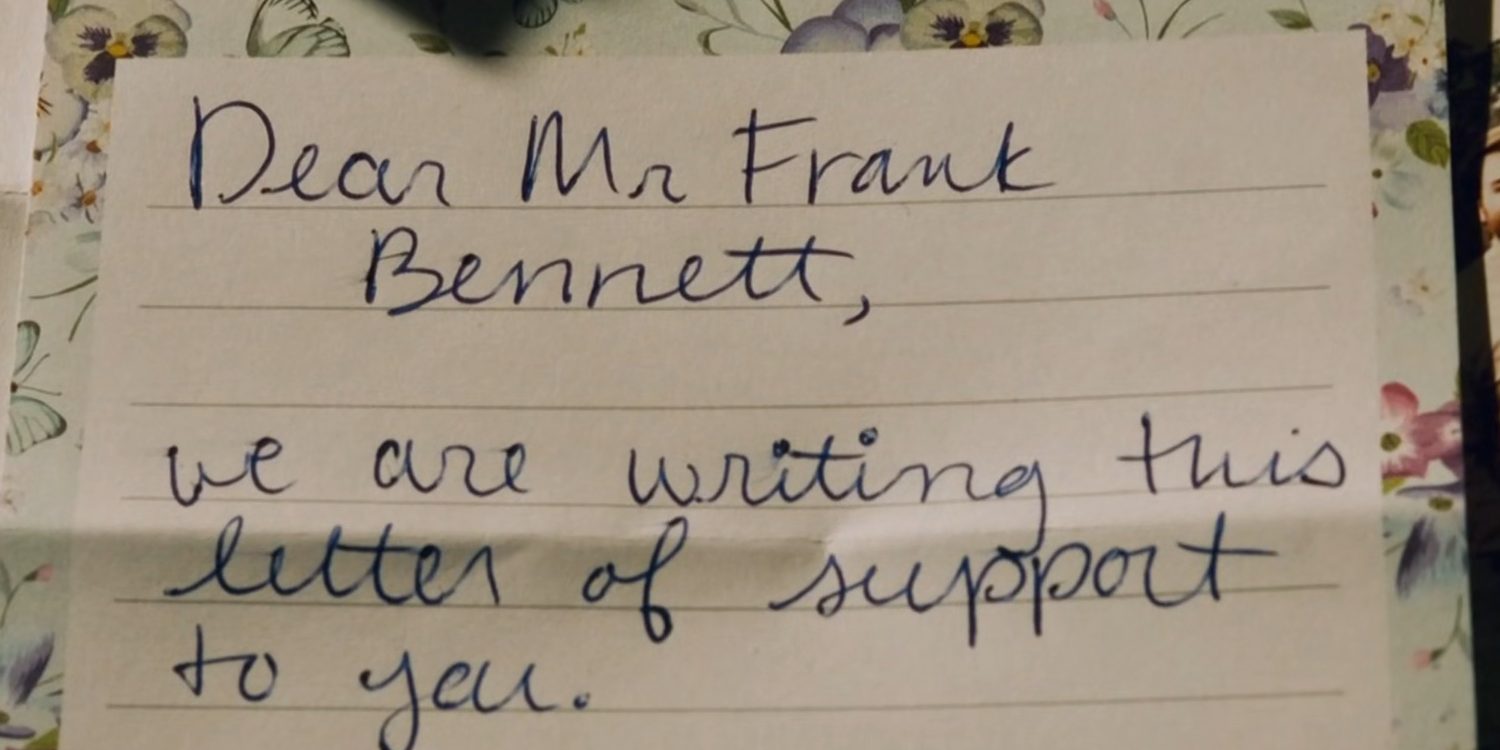 Dear Mr Frank
Bennett,
we are writing this
letter of support
to you.